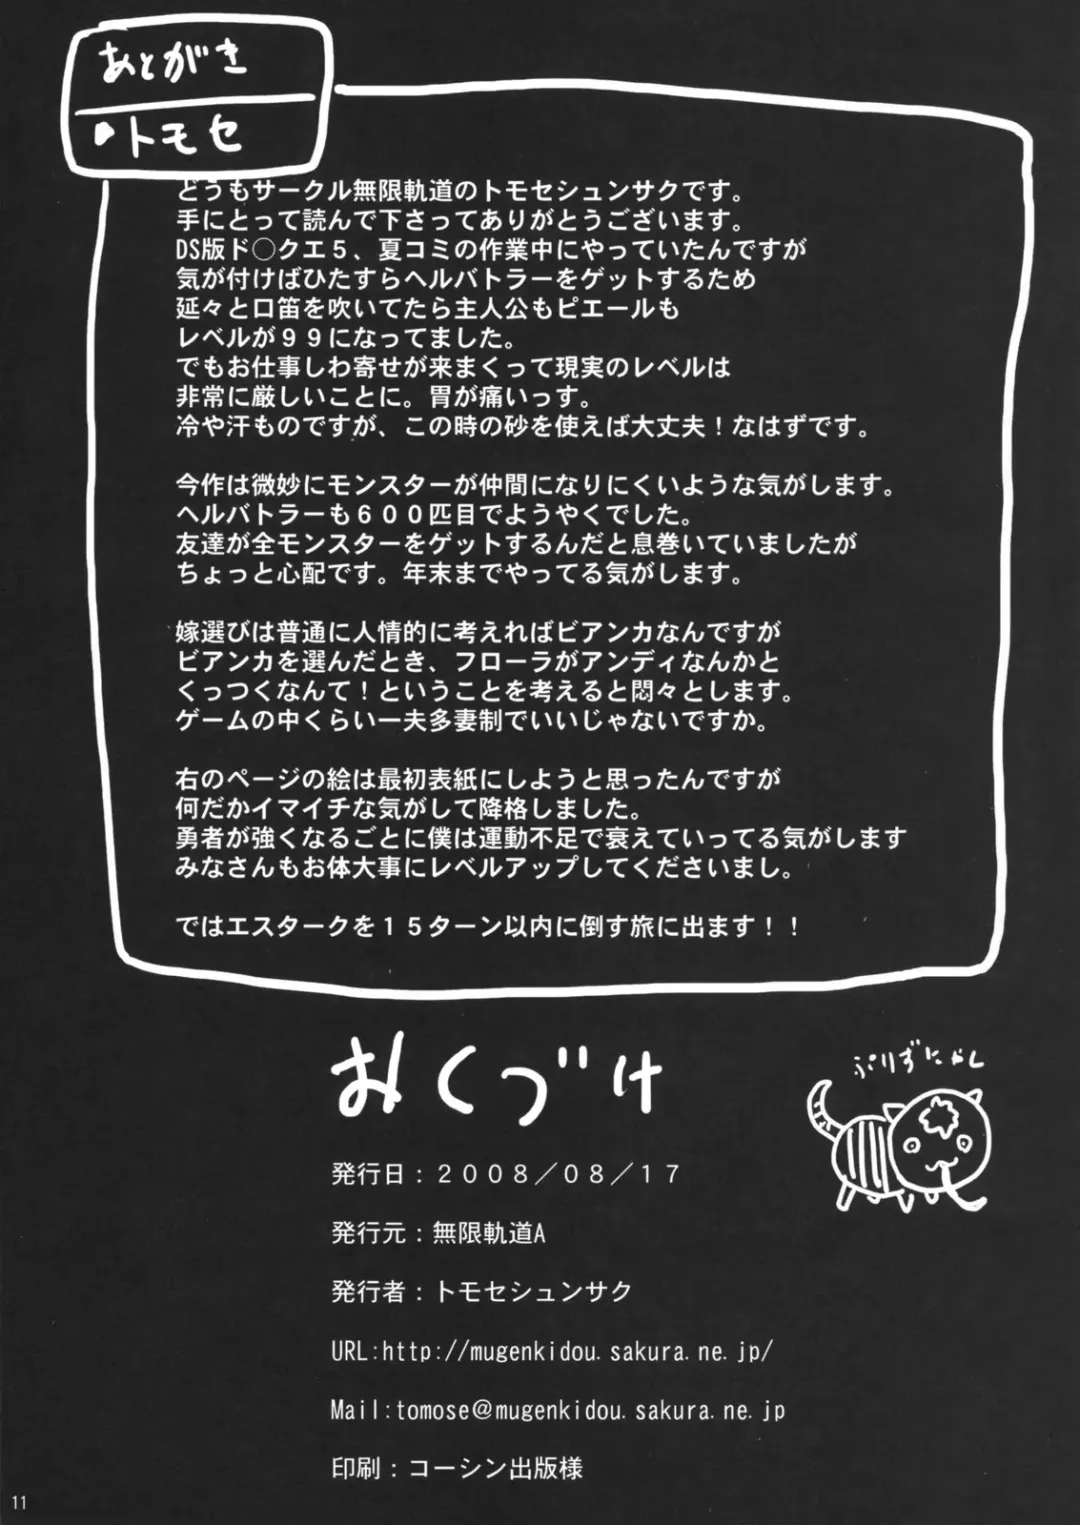 あとがき
・トモセ
どうもサークル無限軌道のトモセシュンサクです。
手にとって読んで下さってありがとうございます。
DS版ド○クエ５、夏コミの作業中にやっていたんですが
気が付けばひたすらヘルバトラーをゲットするため
延々と口笛を吹いてたら主人公もピエールも
レベルが９９になってました。
でもお仕事しわ寄せが来まくって現実のレベルは
非常に厳しいことに。胃が痛いっす。
冷や汗ものですが、この時の砂を使えば大丈夫！なはずです。
今作は微妙にモンスターが仲間になりにくいような気がします。
ヘルバトラーも６００匹目でようやくでした。
友達が全モンスターをゲットするんだと息巻いていましたが
ちょっと心配です。年末までやってる気がします。
嫁選びは普通に人情的に考えればビアンカなんですが
ビアンカを選んだとき、フローラがアンディなんかと
くっつくなんて！ということを考えると悶々とします。
ゲームの中くらい一夫多妻制でいいじゃないですか。
右のページの絵は最初表紙にしようと思ったんですが
何だかイマイチな気がして降格しました。
勇者が強くなるごとに僕は運動不足で衰えていってる気がします
みなさんもお体大事にレベルアップしてくださいまし。
ではエスタークを１５ターン以内に倒す旅に出ます！！
おくづけ
ぷりずにゃん
発行日：２００８／０８／１７
発行元：無限軌道A
発行者：トモセシュンサク
URL:http://mugenkidou.sakura.ne.jp/
Mail:tomose@mugenkidou.sakura.ne.jp
印刷：コーシン出版様
11